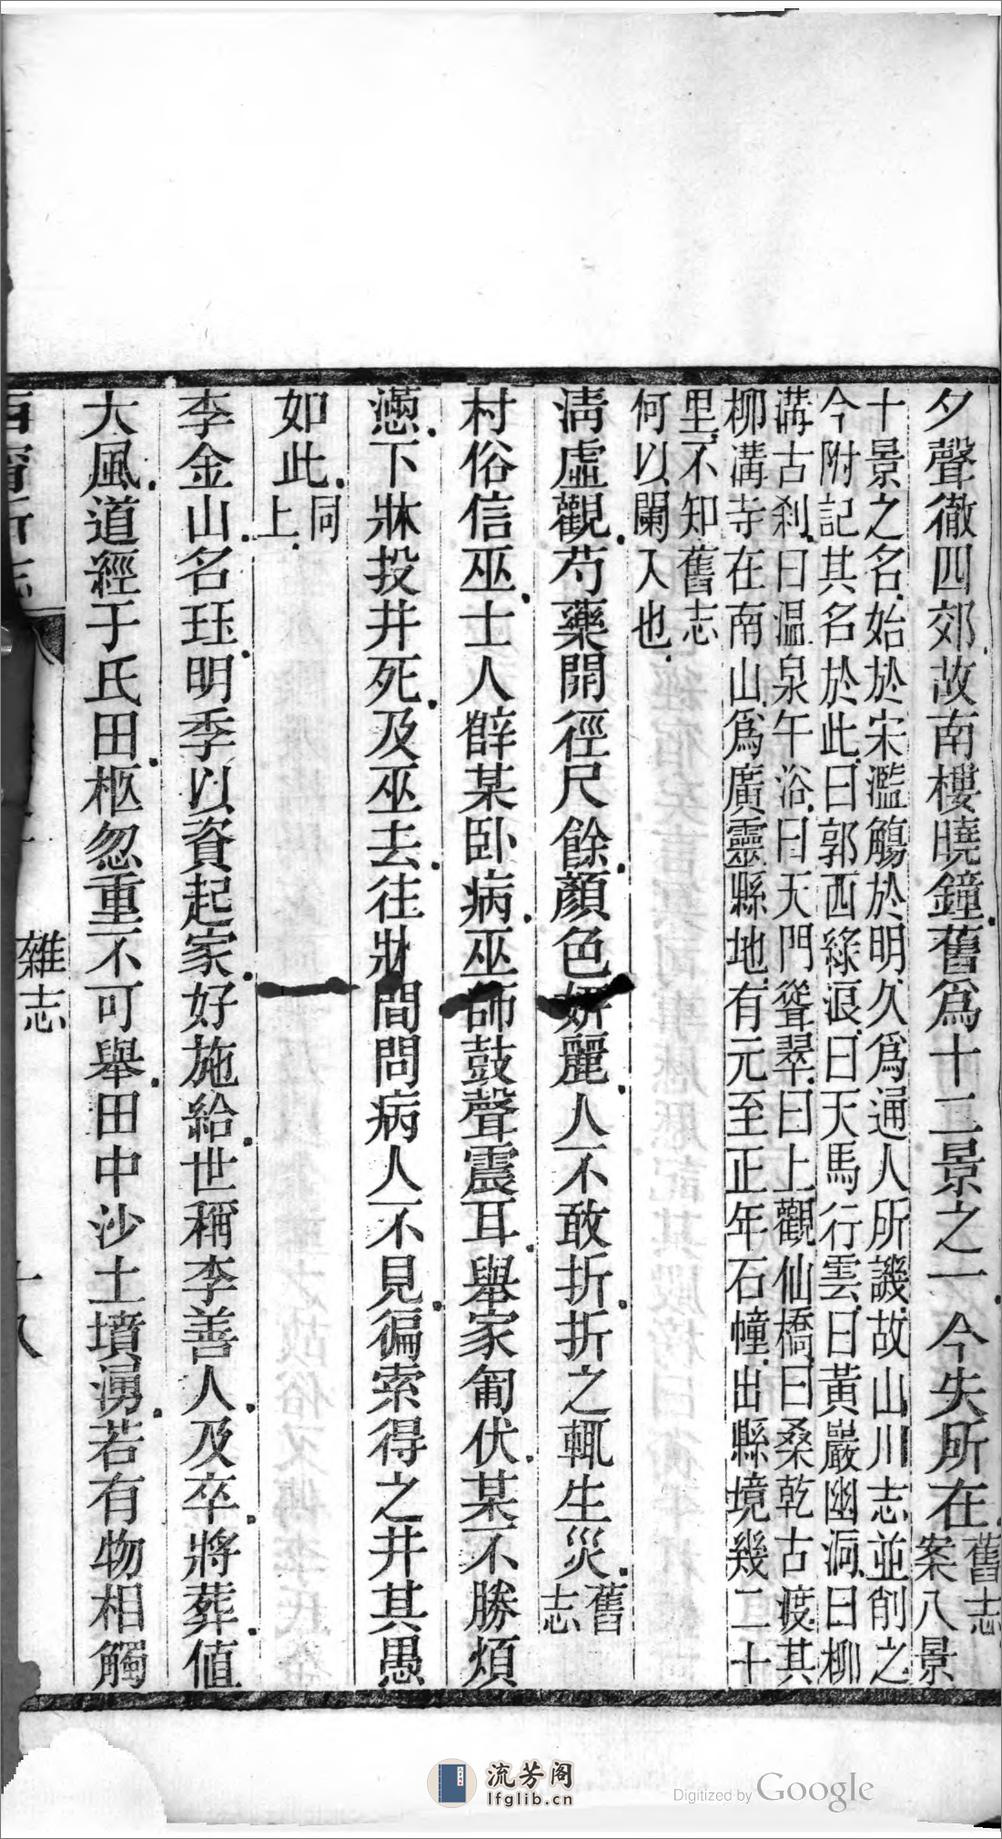 夕聲徹四郊故南樓曉鐘舊爲十二景之一今失所在舊志
案八景
十景之名始於宋濫觴於明久爲通人所譏故山川志並削之
今附記其名於此曰郭西綠浪曰天馬行雲曰黃巖幽洞曰柳
溝古刹曰温泉午浴曰天門聳翠曰上觀仙橋曰桑乾古渡其
柳溝寺在南山爲廣靈縣地有元至正年石幢出縣境幾二十
里不知舊志
何以闌入也
淸虛觀芍藥開徑尺餘顏色妍麗人不敢折折之輒生災舊志
村俗信巫士人薛某卧病巫師鼓聲震耳舉家匍伏某不勝煩
懣下牀投井死及巫去往牀間問病人不見徧索得之井其愚
如此同上
李金山名珏明季以資起家好施給世稱李善人及卒將葬值
大風道經于氏田柩忽重不可舉田中沙土墳湧若有物相觸
雜志
十八
流芳阁
lfglib.cn
Digitized by Google